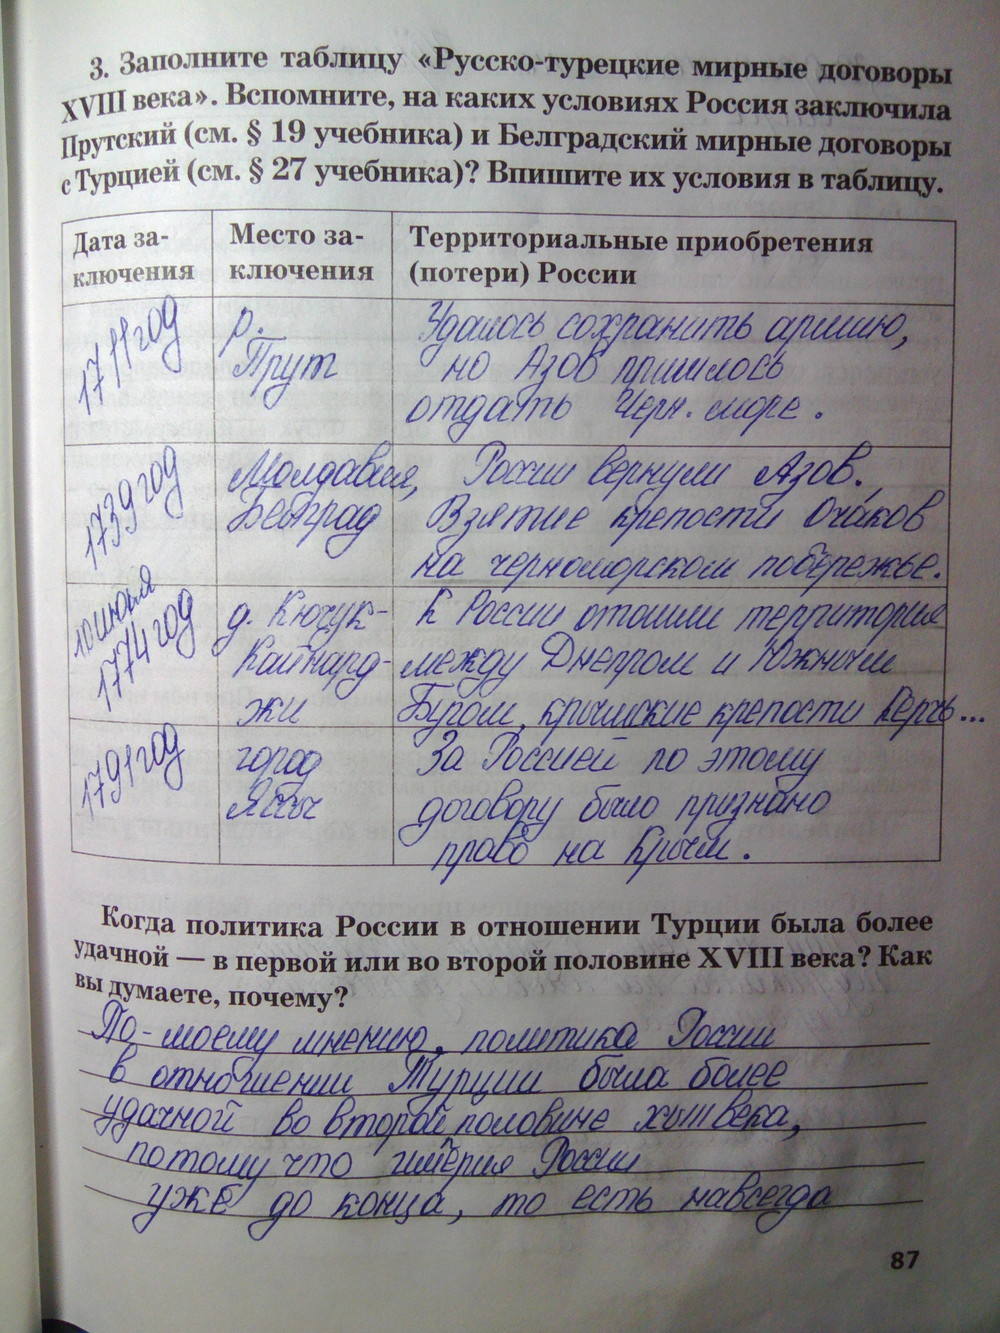 3. Заполните таблицу «Русско-турецкие мирные договоры
XVIII века». Вспомните, на каких условиях Россия заключила
Прутский (см. § 19 учебника) и Белградский мирные договоры
с Турцией (см. § 27 учебника)? Впишите их условия в таблицу.
Дата за-
ключения
Место за-
ключения
Территориальные приобретения
(потери) России
1711 год
р.
Прут
Удалось сохранить армию,
но Азов пришлось
отдать Черн. море.
1739 год
Молдавия,
Белград
России вернули Азов.
Взятие крепости Очаков
на черноморском побережье.
10 июля
1774 год
д. Кючук-
Кайнард-
жи
К России отошли территория
между Днепром и Южным
Бугом, крымские крепости Керчь...
1791 год
город
Яссы
За Россией по этому
договору было признано
право на Крым.
Когда политика России в отношении Турции была более
удачной — в первой или во второй половине XVIII века? Как
вы думаете, почему?
По-моему мнению, политика России
в отношении Турции была более
удачной во второй половине XVIII века,
потому что империя России
уже до конца, то есть навсегда
87